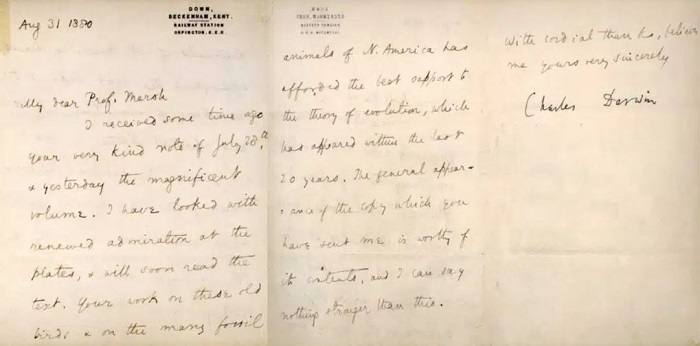 Aug 31 1880
DOWN,
BECKENHAM, KENT.
RAILWAY STATION
ORPINGTON. S.E.R.
My dear Prof. Marsh
I received some time ago
your very kind note of July 28th,
& yesterday the magnificent
volume. I have looked with
renewed admiration at the
plates, & will soon read the
text. Your work on these old
birds & on the many fossil
animals of N. America has
afforded the best support to
the theory of evolution, which
has appeared within the last
20 years. The general appear-
ance of the copy which you
have sent me is worthy of
its contents, and I can say
nothing stronger than this.
With cordial thanks, believe
me yours very sincerely
Charles Darwin